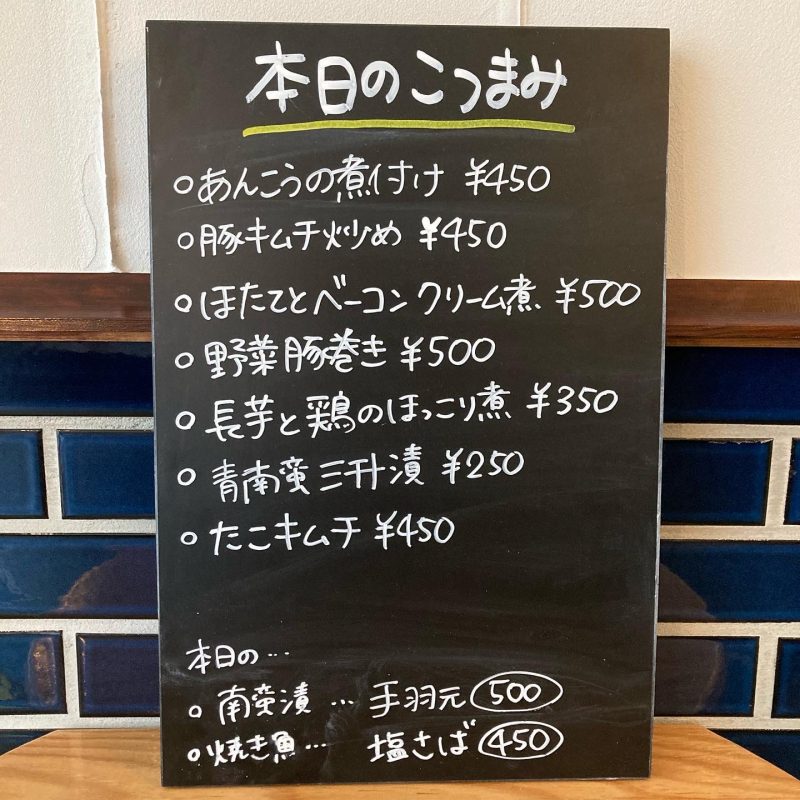 本日のこつまみ
○あんこうの煮付け ¥450
○豚キムチ炒め ¥450
○ほたてとベーコンクリーム煮 ¥500
○野菜豚巻き ¥500
○長芋と鶏のほっこり煮 ¥350
○青南蛮三升漬 ¥250
○たこキムチ ¥450
本日の…
○南蛮漬 … 手羽元 500
○焼き魚… 塩さば 450